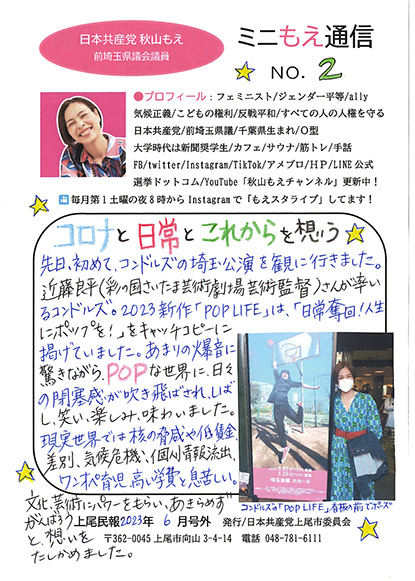 日本共産党 秋山もえ
前埼玉県議会議員
ミニもえ通信
NO. 2
●プロフィール：フェミニスト/ジェンダー平等/ally
気候正義/こどもの権利/反戦平和/すべての人の人権を守る
日本共産党/前埼玉県議/千葉県生まれ/O型
大学時代は新聞奨学生/カフェ/サウナ/筋トレ/手話
FB/twitter/Instagram/TikTok/アメブロ/HP/LINE公式
選挙ドットコム/YouTube「秋山もえチャンネル」更新中！
毎月第1土曜の夜8時からInstagramで「もえスタライブ」してます！
コロナと日常とこれからを想う
先日、初めて、コンドルズの埼玉公演を観に行きました。
近藤良平(彩の国さいたま芸術劇場芸術監督)さんが率い
るコンドルズ。2023新作「POP LIFE」は、「日常奪回！人生
にポップを！」をキャッチコピーに
掲げていました。あまりの爆音に
驚きながら、POPな世界に、日々
の閉塞感が吹き飛ばされ、しば
し、笑い、楽しみ、味わいました。
現実世界では核の脅威や低賃金、
差別、気候危機、個人情報流出、
ワンオペ育児、高い学費、息苦しい。
文化、芸術にパワーをもらい、あきらめず
がんばろう
と、想いを
たしかめました。
コンドルズの「POP LIFE」看板の前でポーズ
上尾民報2023年 6月号外 発行/日本共産党上尾市委員会
〒362-0045 上尾市向山3-4-14 電話 048-781-6111